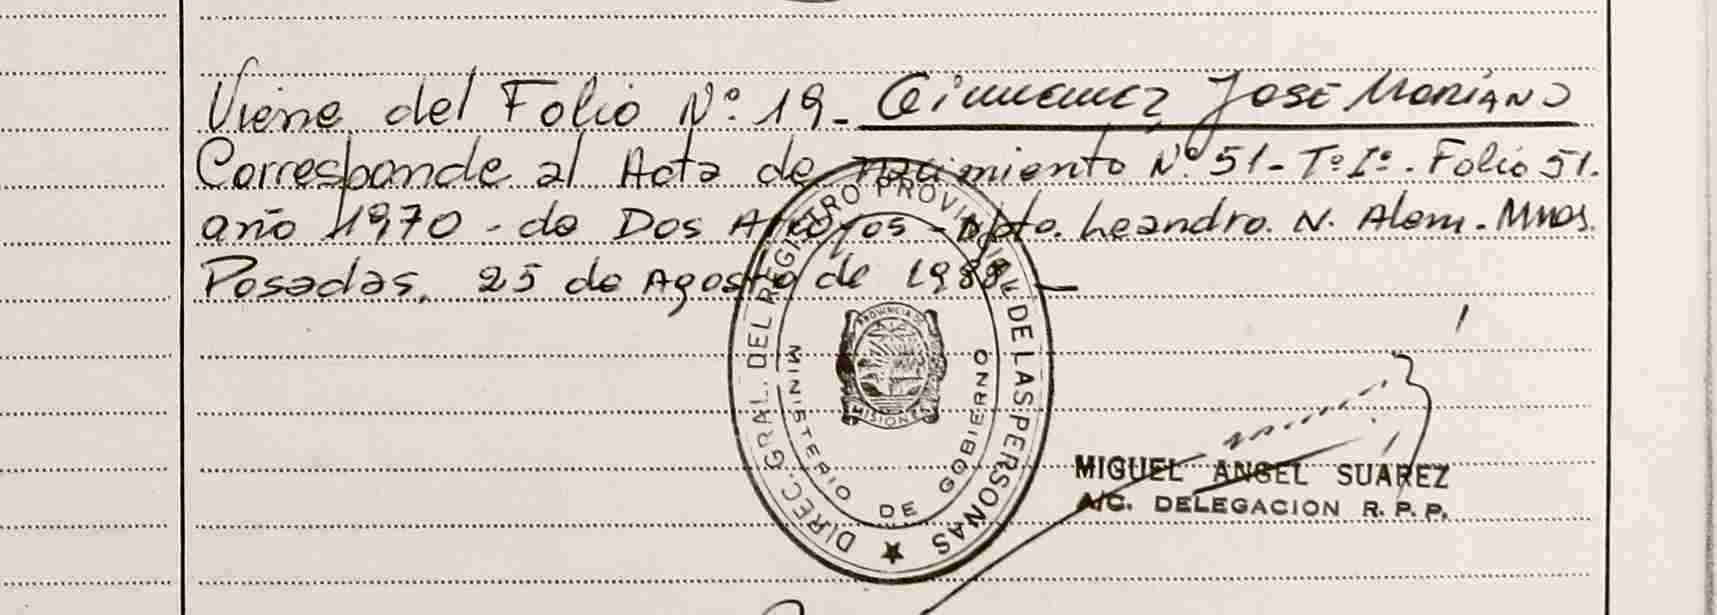 Viene del Folio Nº. 19_ Gimenez José Mariano
Corresponde al Acta de nacimiento Nº 51 - Tº. Iº. Folio 51.
año 1970 - de Dos Arroyos - Dpto. Leandro. N. Alem. Mnes.
Posadas, 25 de Agosto de 1988._
DIREC. GRAL. DEL REGISTRO PROVINCIAL DE LAS PERSONAS
MINISTERIO DE GOBIERNO
PROVINCIA DE
MISIONES
MIGUEL ANGEL SUAREZ
A/C. DELEGACION R. P. P.